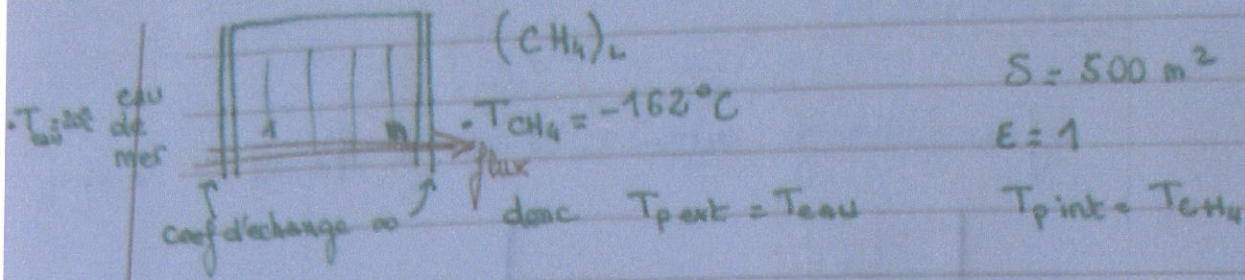 (CH₄)L
S = 500 m²
eau
de
mer
1 n
T CH₄ = -162°C
ε = 1
flux
coef d'échange ∞
donc Tp ext = Teau
Tp int = TCH₄